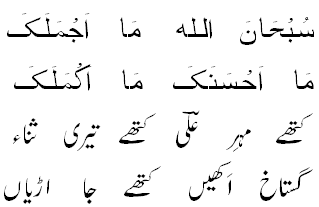 سُبْحَانَ الله مَا اَجْمَلَکَ
مَا اَحْسَنَکَ مَا اَکْمَلَکَ
کتھے مہرِ علیؓ کتھے تیری ثناء
گستاخ اَکھیں کتھے جا اڑیاں